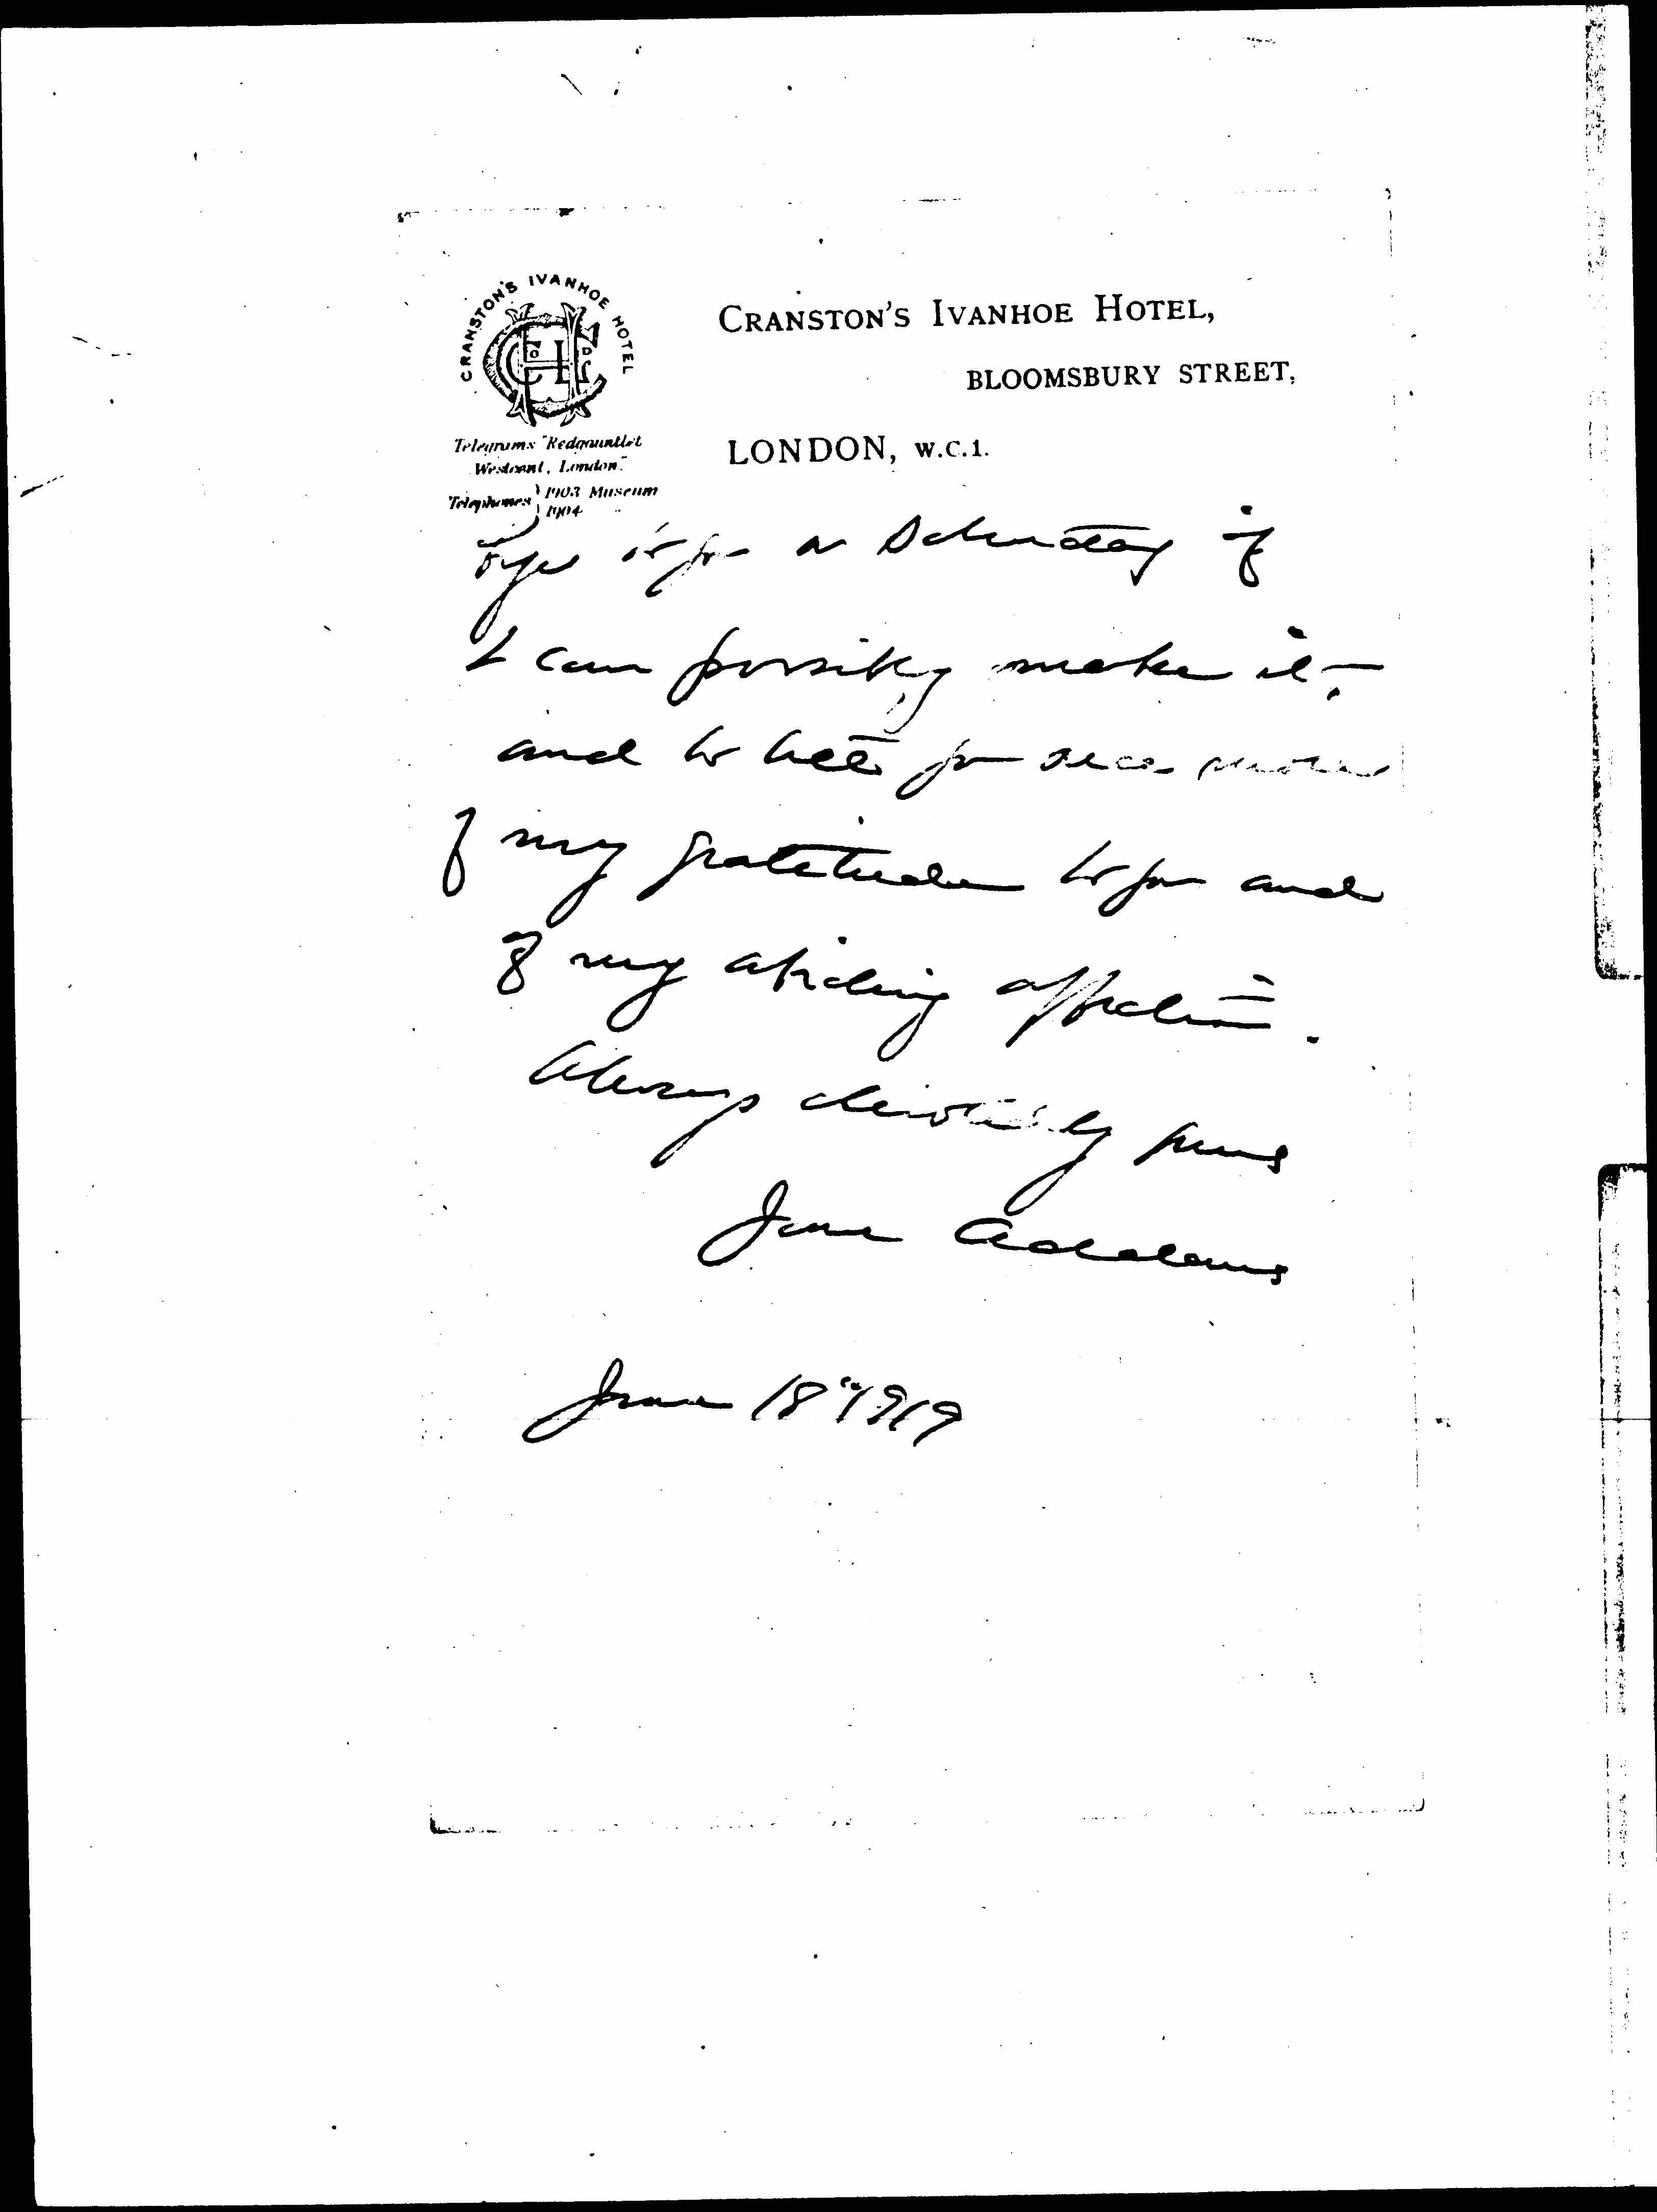 CRANSTON'S IVANHOE HOTEL
CRANSTON'S IVANHOE HOTEL,
BLOOMSBURY STREET,
LONDON, W.C.1.
Telegrams "Redgauntlet
Westcent, London."
Telephones } 1903 Museum
1904
to you on Saturday if
I can possibly make it,
and to tell you once more
of my gratitude to you and
of my abiding affection.
Always devotedly yours
Jane Addams
June 18" 1919